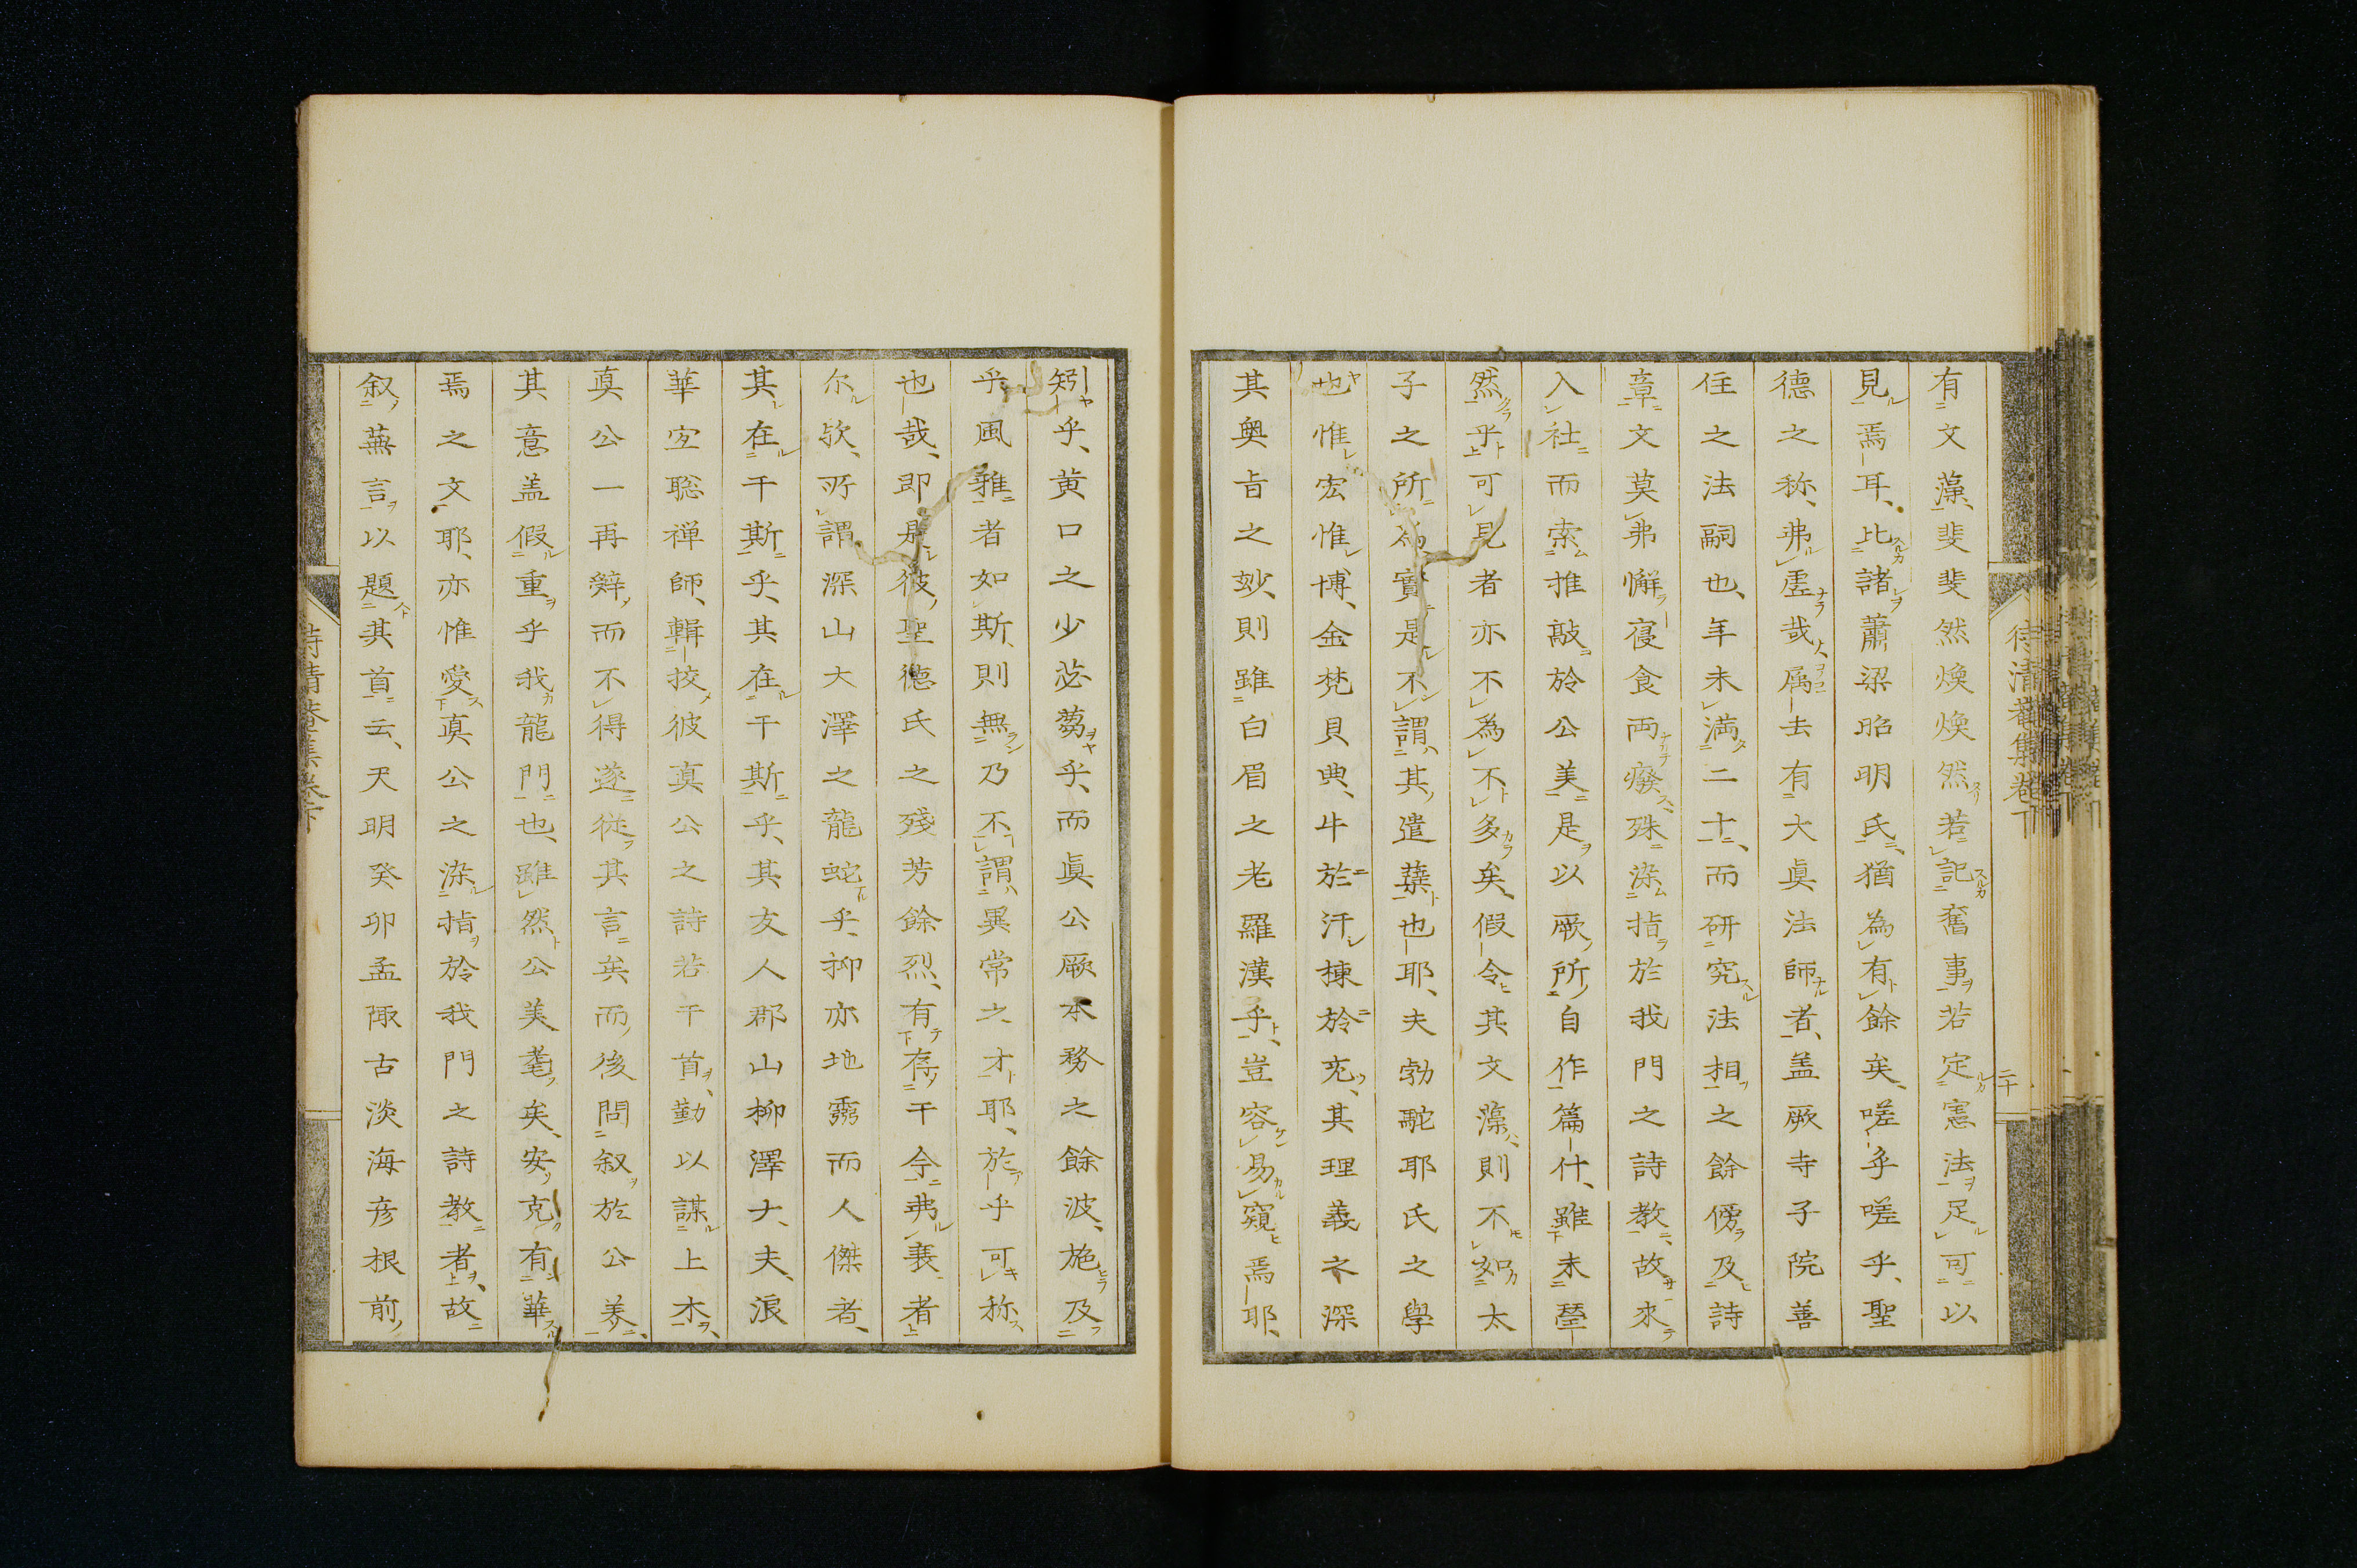 有文藻、斐斐然煥煥然若記舊事若定憲法足可以
見焉耳、比諸蕭梁昭明氏、猶為有餘矣、嗟乎嗟乎、聖
德之称、弗虛哉、属去有大眞法師者、盖厥寺子院善
住之法嗣也、年未満二十、而研究法相之餘傍及詩
章文莫弗懈寝食両癈殊染指於我門之詩教、故来
入社而索推敲於公美是以厥所自作篇什、雖未
然乎可見者亦不為不多矣、假令其文藻、則不如太
子之所為寳是不謂其遣蘖也耶、夫勃駝耶氏之學
也惟宏惟博、金梵貝典、牛於汗棟於充、其理義之深
其奥旨之玅、則雖白眉之老羅漢乎、豈容易窺焉耶、
矧乎、黄口之少苾蒭乎、而眞公厥本務之餘波、施及
乎風雅者如斯、則無乃不謂異常之才耶、於乎可称
也哉、即是彼聖徳氏之殘芳餘烈、有存干今弗衰者
尓欤、所謂深山大澤之龍蛇乎、抑亦地靈而人傑者、
其在干斯乎、其在干斯乎、其友人郡山柳澤大夫、浪
華定聡禅師、輯挍彼眞公之詩若干首、勤以謀上木、
眞公一再辤而不得遂従其言矣而後問叙於公美、
其意盖假重乎我龍門也、雖然公美耄矣、安克有華
焉之文耶、亦惟愛眞公之染指於我門之詩教者、故
叙蕪言以題其首云、天明癸卯孟陬古淡海彦根前
待清菴集巻下
二十